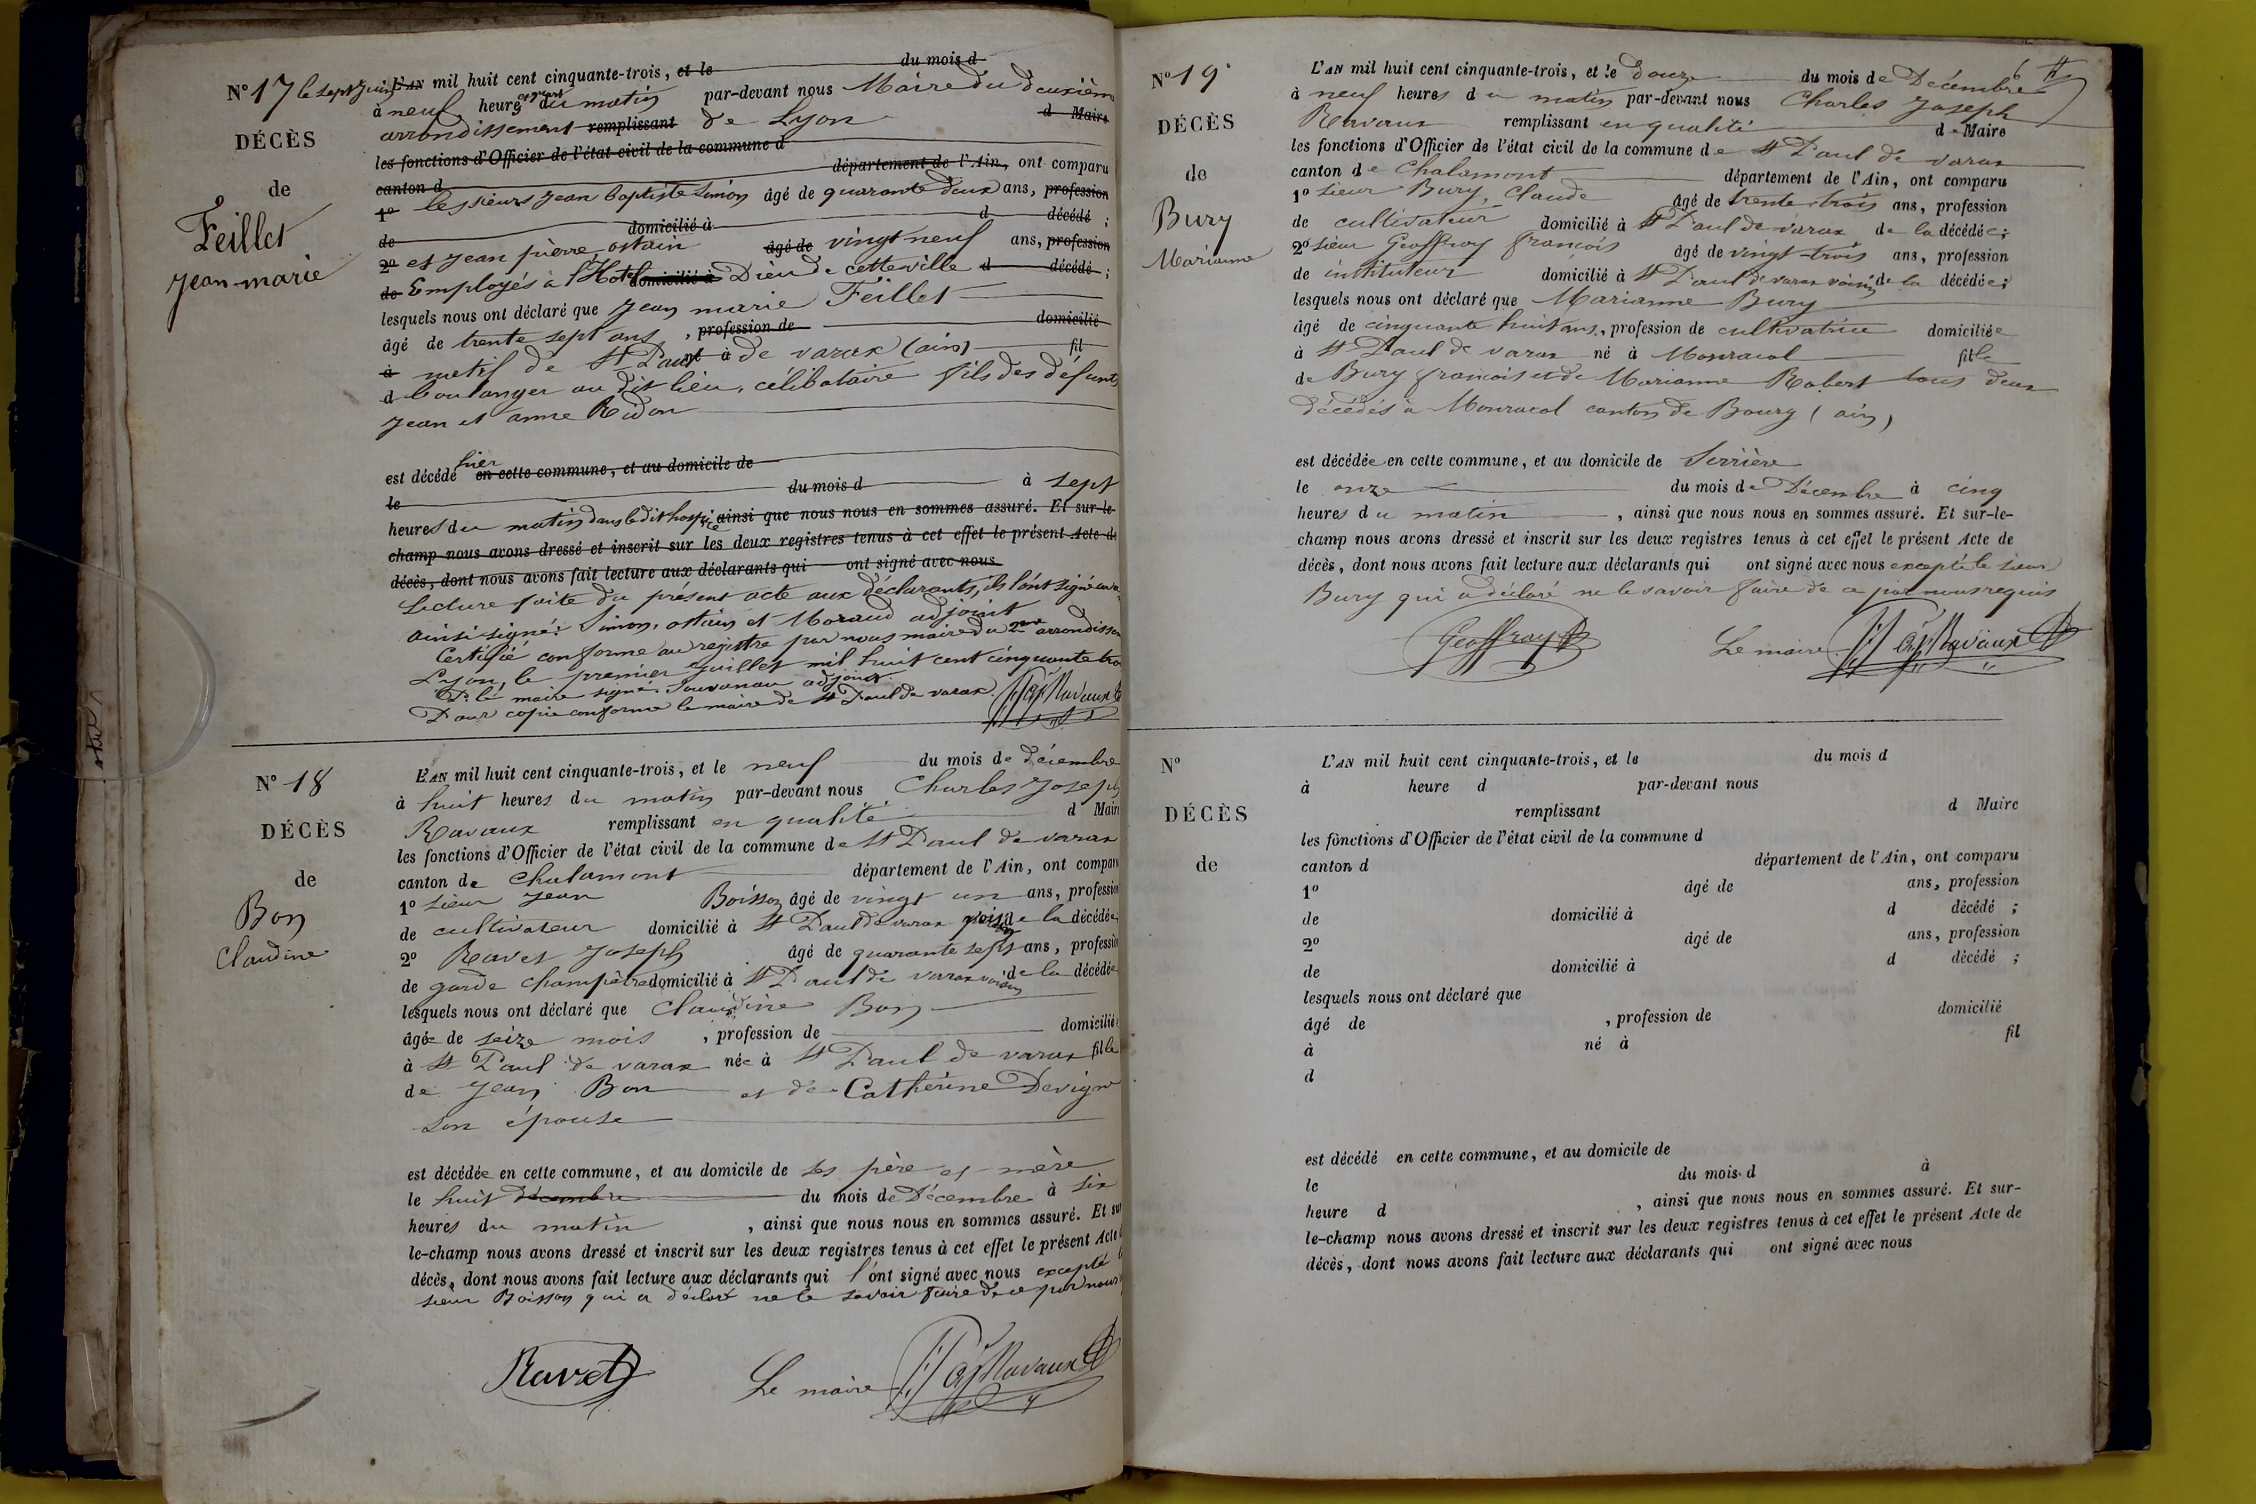 N° 17 le sept juin L'AN mil huit cent cinquante-trois, et le du mois d
à neuf heures du matin par-devant nous Maire du deuxième
arrondissement remplissant de Lyon d Maire
DÉCÈS
les fonctions d'Officier de l'état civil de la commune d
canton d département de l'Ain, ont comparu
de
1° les sieurs Jean baptiste Simon âgé de quarante deux ans, profession
de domicilié à d décédé ;
Feillet
2° et Jean pierre ostain âgé de vingt neuf ans, profession
Jean-marie
de Employés à l'Hotel domicilié à Dieu de cette ville d décédé ;
lesquels nous ont déclaré que Jean marie Feillet
âgé de trente sept ans, profession de domicilié
à natif de St Paul né à de varax (ain) fil
d boulanger au dit lieu, célibataire fils des défunts
Jean et anne Ridon
est décédé hier en cette commune, et au domicile de
le du mois d à sept
heures du matin dans ledit hospice ainsi que nous nous en sommes assuré. Et sur-le-
champ nous avons dressé et inscrit sur les deux registres tenus à cet effet le présent Acte de
décès, dont nous avons fait lecture aux déclarants qui ont signé avec nous
Lecture faite du présent acte aux déclarants, ils l'ont signé
ainsi signé: Simon, ostain et Moraud adjoint
Certifié conforme au registre par nous maire du 2me arrondissem
Lyon, le premier Juillet mil huit cent cinquante tro
P. le maire signé adjoint
Pour copie conforme le maire de St Paul de varax. Ravaux
N° 18
L'AN mil huit cent cinquante-trois, et le neuf du mois de décembre
à huit heures du matin par-devant nous Charles Joseph
DÉCÈS
Ravaux remplissant en qualité d Maire
les fonctions d'Officier de l'état civil de la commune de St Paul de varax
de
canton de Chalamont département de l'Ain, ont comparu
1° sieur Jean Boisson âgé de vingt un ans, profession
Bon
de cultivateur domicilié à St Paul de varax voisin de la décédée;
Claudine
2° Ravet Joseph âgé de quarante sept ans, profession
de garde champêtre domicilié à St Paul de varax voisin de la décédée
lesquels nous ont déclaré que Claudine Bon
âgée de seize mois , profession de domiciliée
à St Paul de varax née à St Paul de varax fille
de Jean Bon et de Cathérine Devigne
son épouse
est décédée en cette commune, et au domicile de ses père et mère
le huit décembre du mois de Décembre à six
heures du matin , ainsi que nous nous en sommes assuré. Et sur
le-champ nous avons dressé et inscrit sur les deux registres tenus à cet effet le présent Acte
décès, dont nous avons fait lecture aux déclarants qui l'ont signé avec nous excepté
sieur Boisson qui a déclaré ne le savoir faire de ce par nous
Ravet Le maire Ravaux
N° 19
L'AN mil huit cent cinquante-trois, et le douze du mois de Décembre
à neuf heures du matin par-devant nous Charles Joseph
DÉCÈS
Ravaux remplissant en qualité de Maire
les fonctions d'Officier de l'état civil de la commune de St Paul de varax
de
canton de Chalamont département de l'Ain, ont comparu
1° sieur Bury, Claude âgé de trente-trois ans, profession
Bury
de cultivateur domicilié à St Paul de varax de la décédée;
2° sieur Geoffroy françois âgé de vingt-trois ans, profession
Marianne
de instituteur domicilié à St Paul de varax voisin de la décédée;
lesquels nous ont déclaré que Marianne Bury
âgé de cinquante huit ans, profession de cultivatrice domiciliée
à St Paul de varax né à Monracol fille
de Bury françois et de Marianne Robert tous deux
décédés à Monracol canton de Bourg (ain)
est décédée en cette commune, et au domicile de Serrière
le onze du mois de Décembre à cinq
heures du matin , ainsi que nous nous en sommes assuré. Et sur-le-
champ nous avons dressé et inscrit sur les deux registres tenus à cet effet le présent Acte de
décès, dont nous avons fait lecture aux déclarants qui ont signé avec nous excepté le sieur
Bury qui a déclaré ne le savoir faire de ce par nous requis
Geoffroy Le maire Ravaux
N°
L'AN mil huit cent cinquante-trois, et le du mois d
à heure d par-devant nous
DÉCÈS
remplissant d Maire
les fonctions d'Officier de l'état civil de la commune d
de
canton d département de l'Ain, ont comparu
1° âgé de ans, profession
de domicilié à d décédé ;
2° âgé de ans, profession
de domicilié à d décédé ;
lesquels nous ont déclaré que
âgé de , profession de domicilié
à né à fil
d
est décédé en cette commune, et au domicile de
le du mois d à
heure d , ainsi que nous nous en sommes assuré. Et sur-
le-champ nous avons dressé et inscrit sur les deux registres tenus à cet effet le présent Acte de
décès, dont nous avons fait lecture aux déclarants qui ont signé avec nous